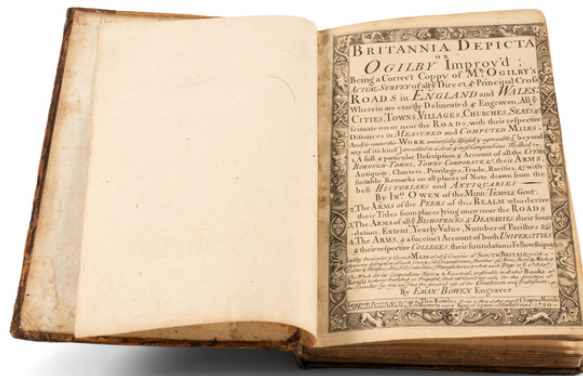 BRITANNIA DEPICTA
OR
OGILBY Improv'd;
Being a Correct Coppy of Mr. OGILBY'S
ACTUAL SURVEY of all ye Direct & Principal Cross
ROADS in ENGLAND and WALES:
Wherein are exactly Delineated & Engraven All ye
CITIES, TOWNS, VILLAGES, CHURCHES, SEATS &c
scituate on or near the ROADS, with their respective
Distances in MEASURED and COMPUTED MILES
And to render this WORK universally Usefull & agreeable, beyond
any of its kind, are added in a clear & most Compendious Method
1. A full & particular Description & Account of all the CITIES,
BOROUGH-TOWNS, TOWNS-CORPORATE &c their ARMS,
Antiquity, Charters, Privileges, Trade, Rarities, &c with
suitable Remarks on all places of Note drawn from the
best HISTORIANS and ANTIQUARIES
By Ino. OWEN of the MIDD. TEMPLE Gent.
2. The ARMS of the PEERS of this REALM who derive
their Titles from places lying on or near the ROADS
3. The ARMS of all ye BISHOPRICKS & DEANARIES their foun
dation, Extent, Yearly Value, Number of Parishes &c
4. The ARMS, & a succinct Account of both UNIVERSITIES
& their respective COLLEGES, their foundations Fellowships
By EMAN: BOWEN Engraver